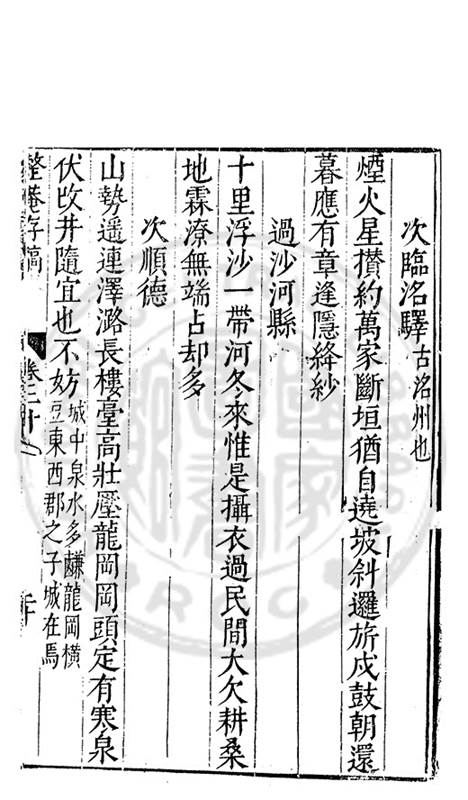 次臨洺驛古洺州也
煙火星攢約萬家斷垣猶自遶坡斜邏旂戍鼓朝還
暮應有章逢隱絳紗
過沙河縣
十里浮沙一帶河冬來惟是攝衣過民間大欠耕桑
地霖潦無端占却多
次順德
山勢遥連澤潞長樓臺高壯壓龍岡岡頭定有寒泉
伏改井隨宜也不妨城中泉水多鹹龍岡橫
亘東西郡之子城在焉
整庵存稿
卷二十
二十